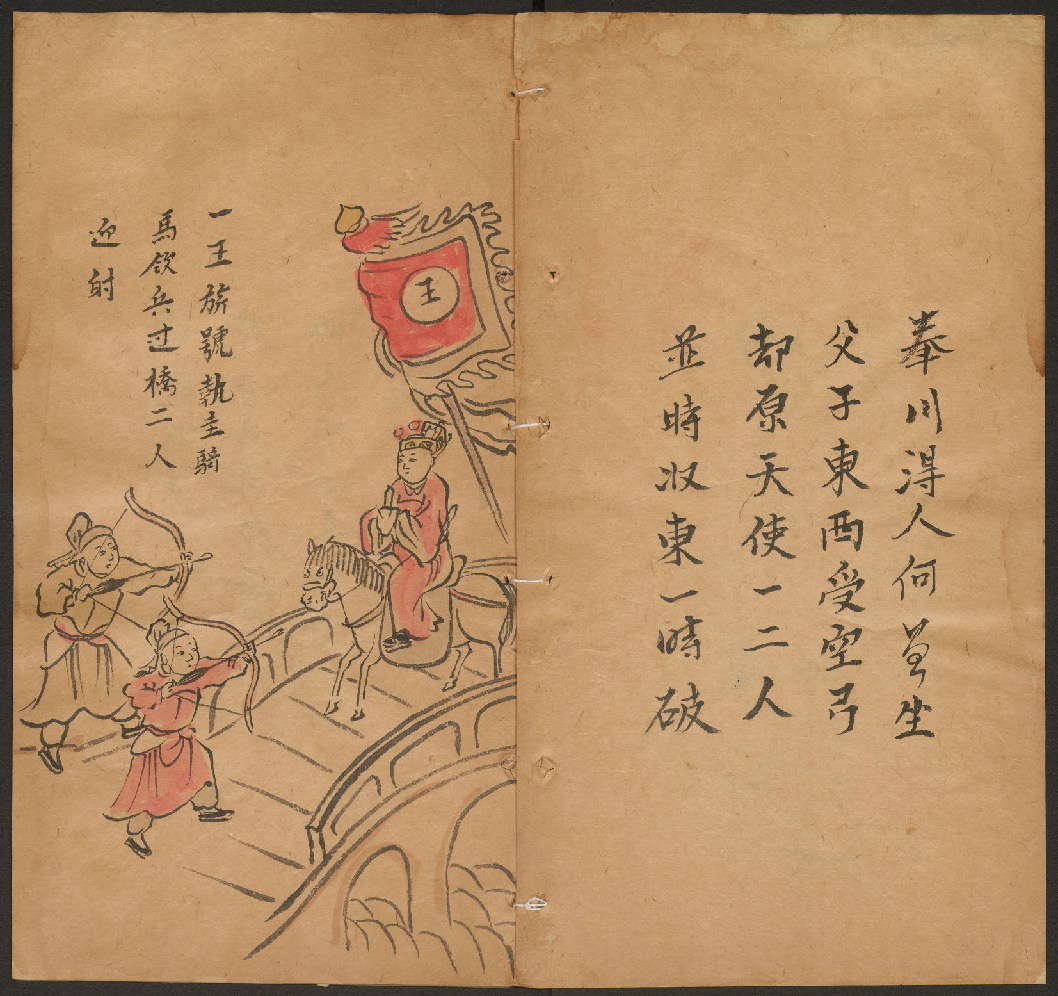 奉川得人何𫩠坐
父子東西受空弓
都原天使一二人
並時収東一時破
王
一王旂號執主騎
馬領兵过橋二人
迎射